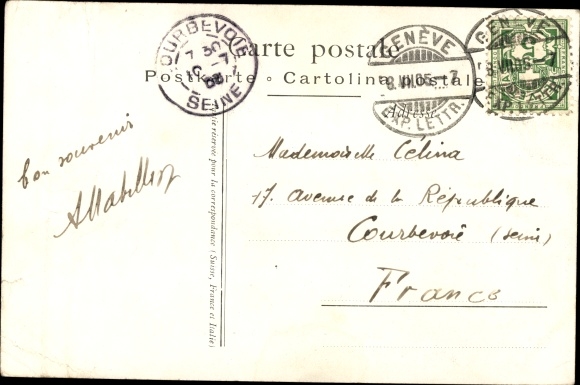 Carte postale
Postkarte - Cartolina postale
COURBEVOIE
SEINE
GENÈVE
8.VII.05.-7
EXP. LETTR.
GENÈVE
EXP. LETTR.
Adresse
bon souvenir
Mademoiselle Célina
17. avenue de la République
Courbevoie (Seine)
France
Partie réservée pour la correspondance (Suisse, France et Italie)